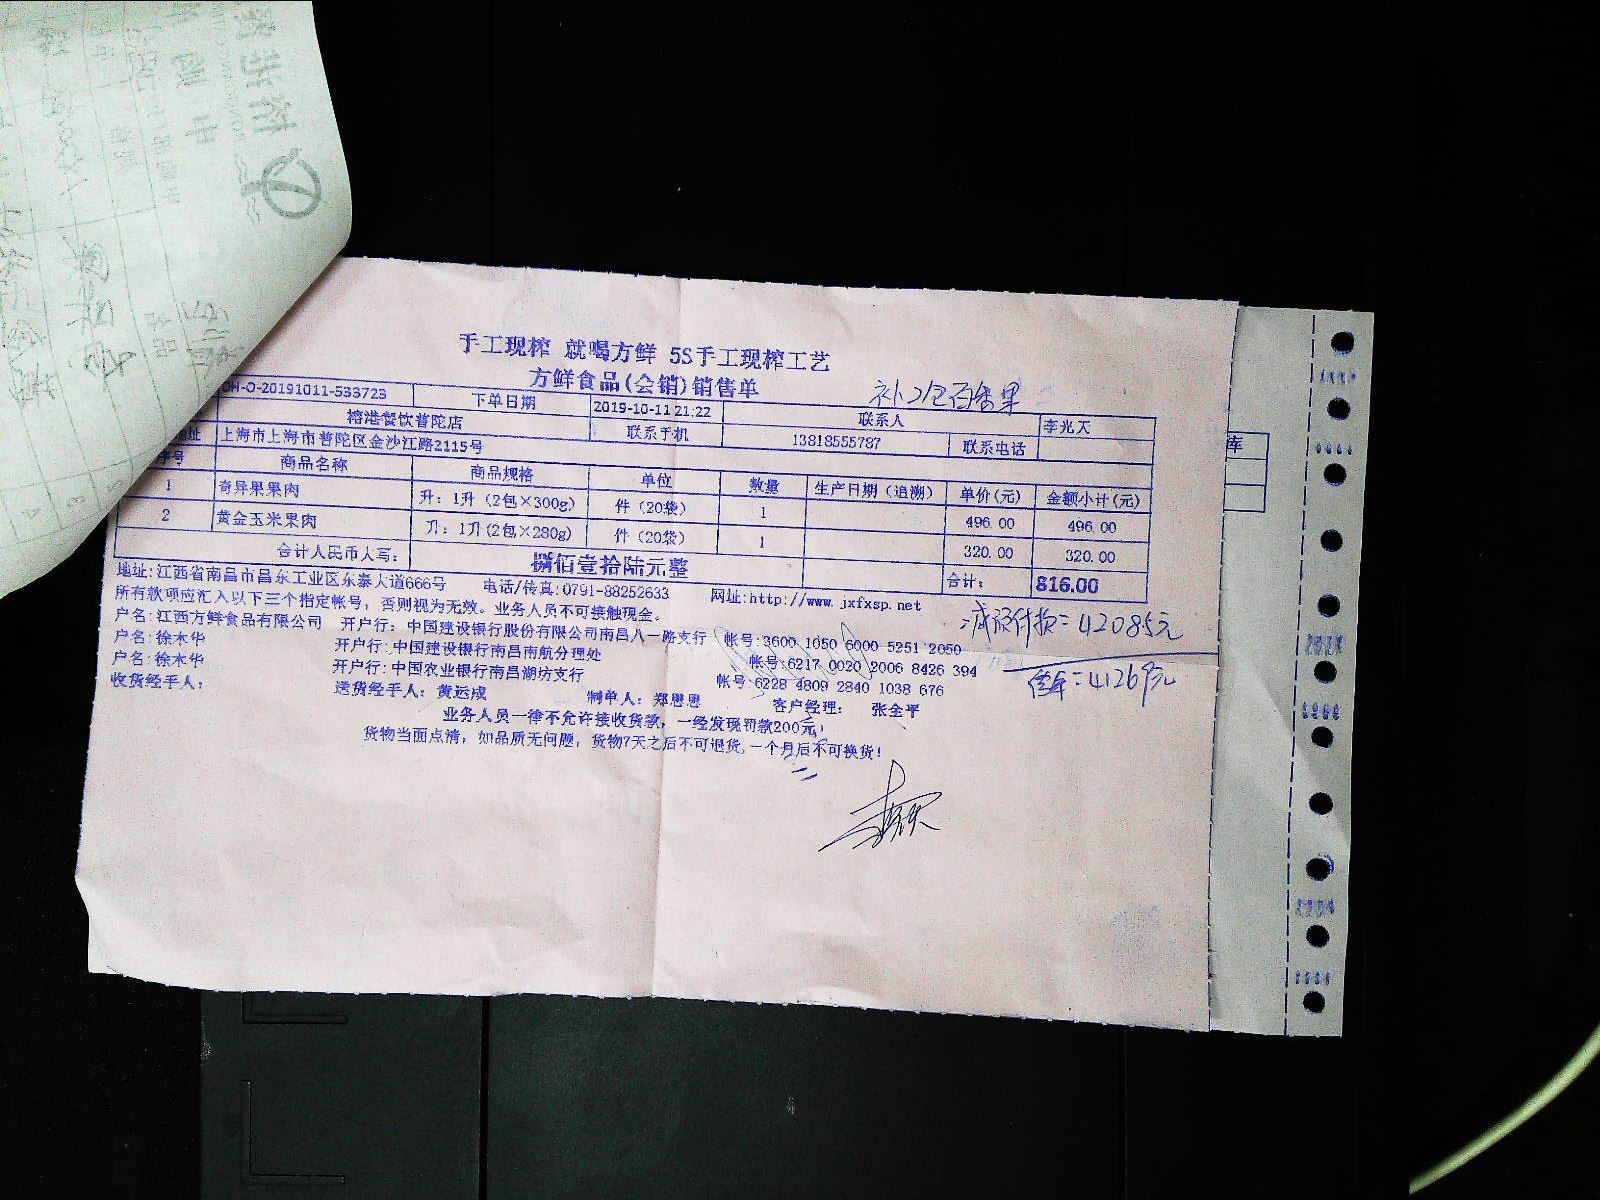 手工现榨 就喝方鲜 5S手工现榨工艺
方鲜食品(会销)销售单
补2包百香果
OH-O-20191011-533723 下单日期 2019-10-11 21:22 联系人 李光天
榕港餐饮普陀店 联系手机 13818555787 联系电话
址 上海市上海市普陀区金沙江路2115号
序号 商品名称 商品规格 单位 数量 生产日期(追溯) 单价(元) 金额小计(元)
1 奇异果果肉 升:1升(2包×300g) 件(20袋) 1 496.00 496.00
2 黄金玉米果肉 升:1升(2包×280g) 件(20袋) 1 320.00 320.00
合计人民币大写: 捌佰壹拾陆元整 合计: 816.00
地址:江西省南昌市昌东工业区东泰大道666号 电话/传真:0791-88252633 网址:http://www.jxfxsp.net
所有款项应汇入以下三个指定帐号,否则视为无效。业务人员不可接触现金。
户名:江西方鲜食品有限公司 开户行:中国建设银行股份有限公司南昌八一路支行 帐号:3600 1050 6000 5251 2050
户名:徐木华 开户行:中国建设银行南昌南航分理处 帐号:6217 0020 2006 8426 394
户名:徐木华 开户行:中国农业银行南昌湖坊支行 帐号:6228 4809 2840 1038 676
收货经手人: 送货经手人:黄运成 制单人:郑思思 客户经理: 张全平
=42085元
=41269元
业务人员一律不允许接收货款,一经发现罚款200元!
货物当面点清,如品质无问题,货物7天之后不可退货,一个月后不可换货!
库